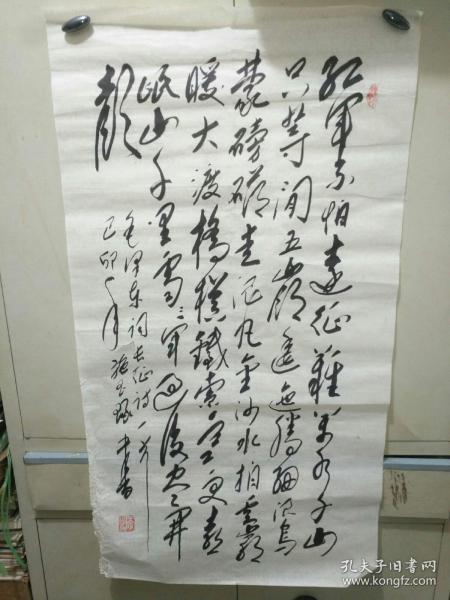 红军不怕远征难万水千山
只等闲五岭逶迤腾细浪乌
蒙磅礴走泥丸金沙水拍云崖
暖大渡桥横铁索寒更喜
岷山千里雪三军过后尽开
颜
毛泽东词长征诗一首
己卯年月施 书
孔夫子旧书网
www.kongfz.com